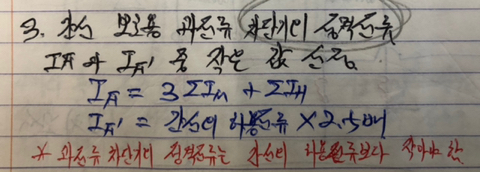 3. 간선 보호용 과전류 차단기의 정격전류
I_A 와 I_A' 중 작은 값 선정.
I_A = 3ΣI_M + ΣI_H
I_A' = 간선의 허용전류 × 2.5배
* 과전류 차단기의 정격전류는 간선의 허용전류보다 작아야 함